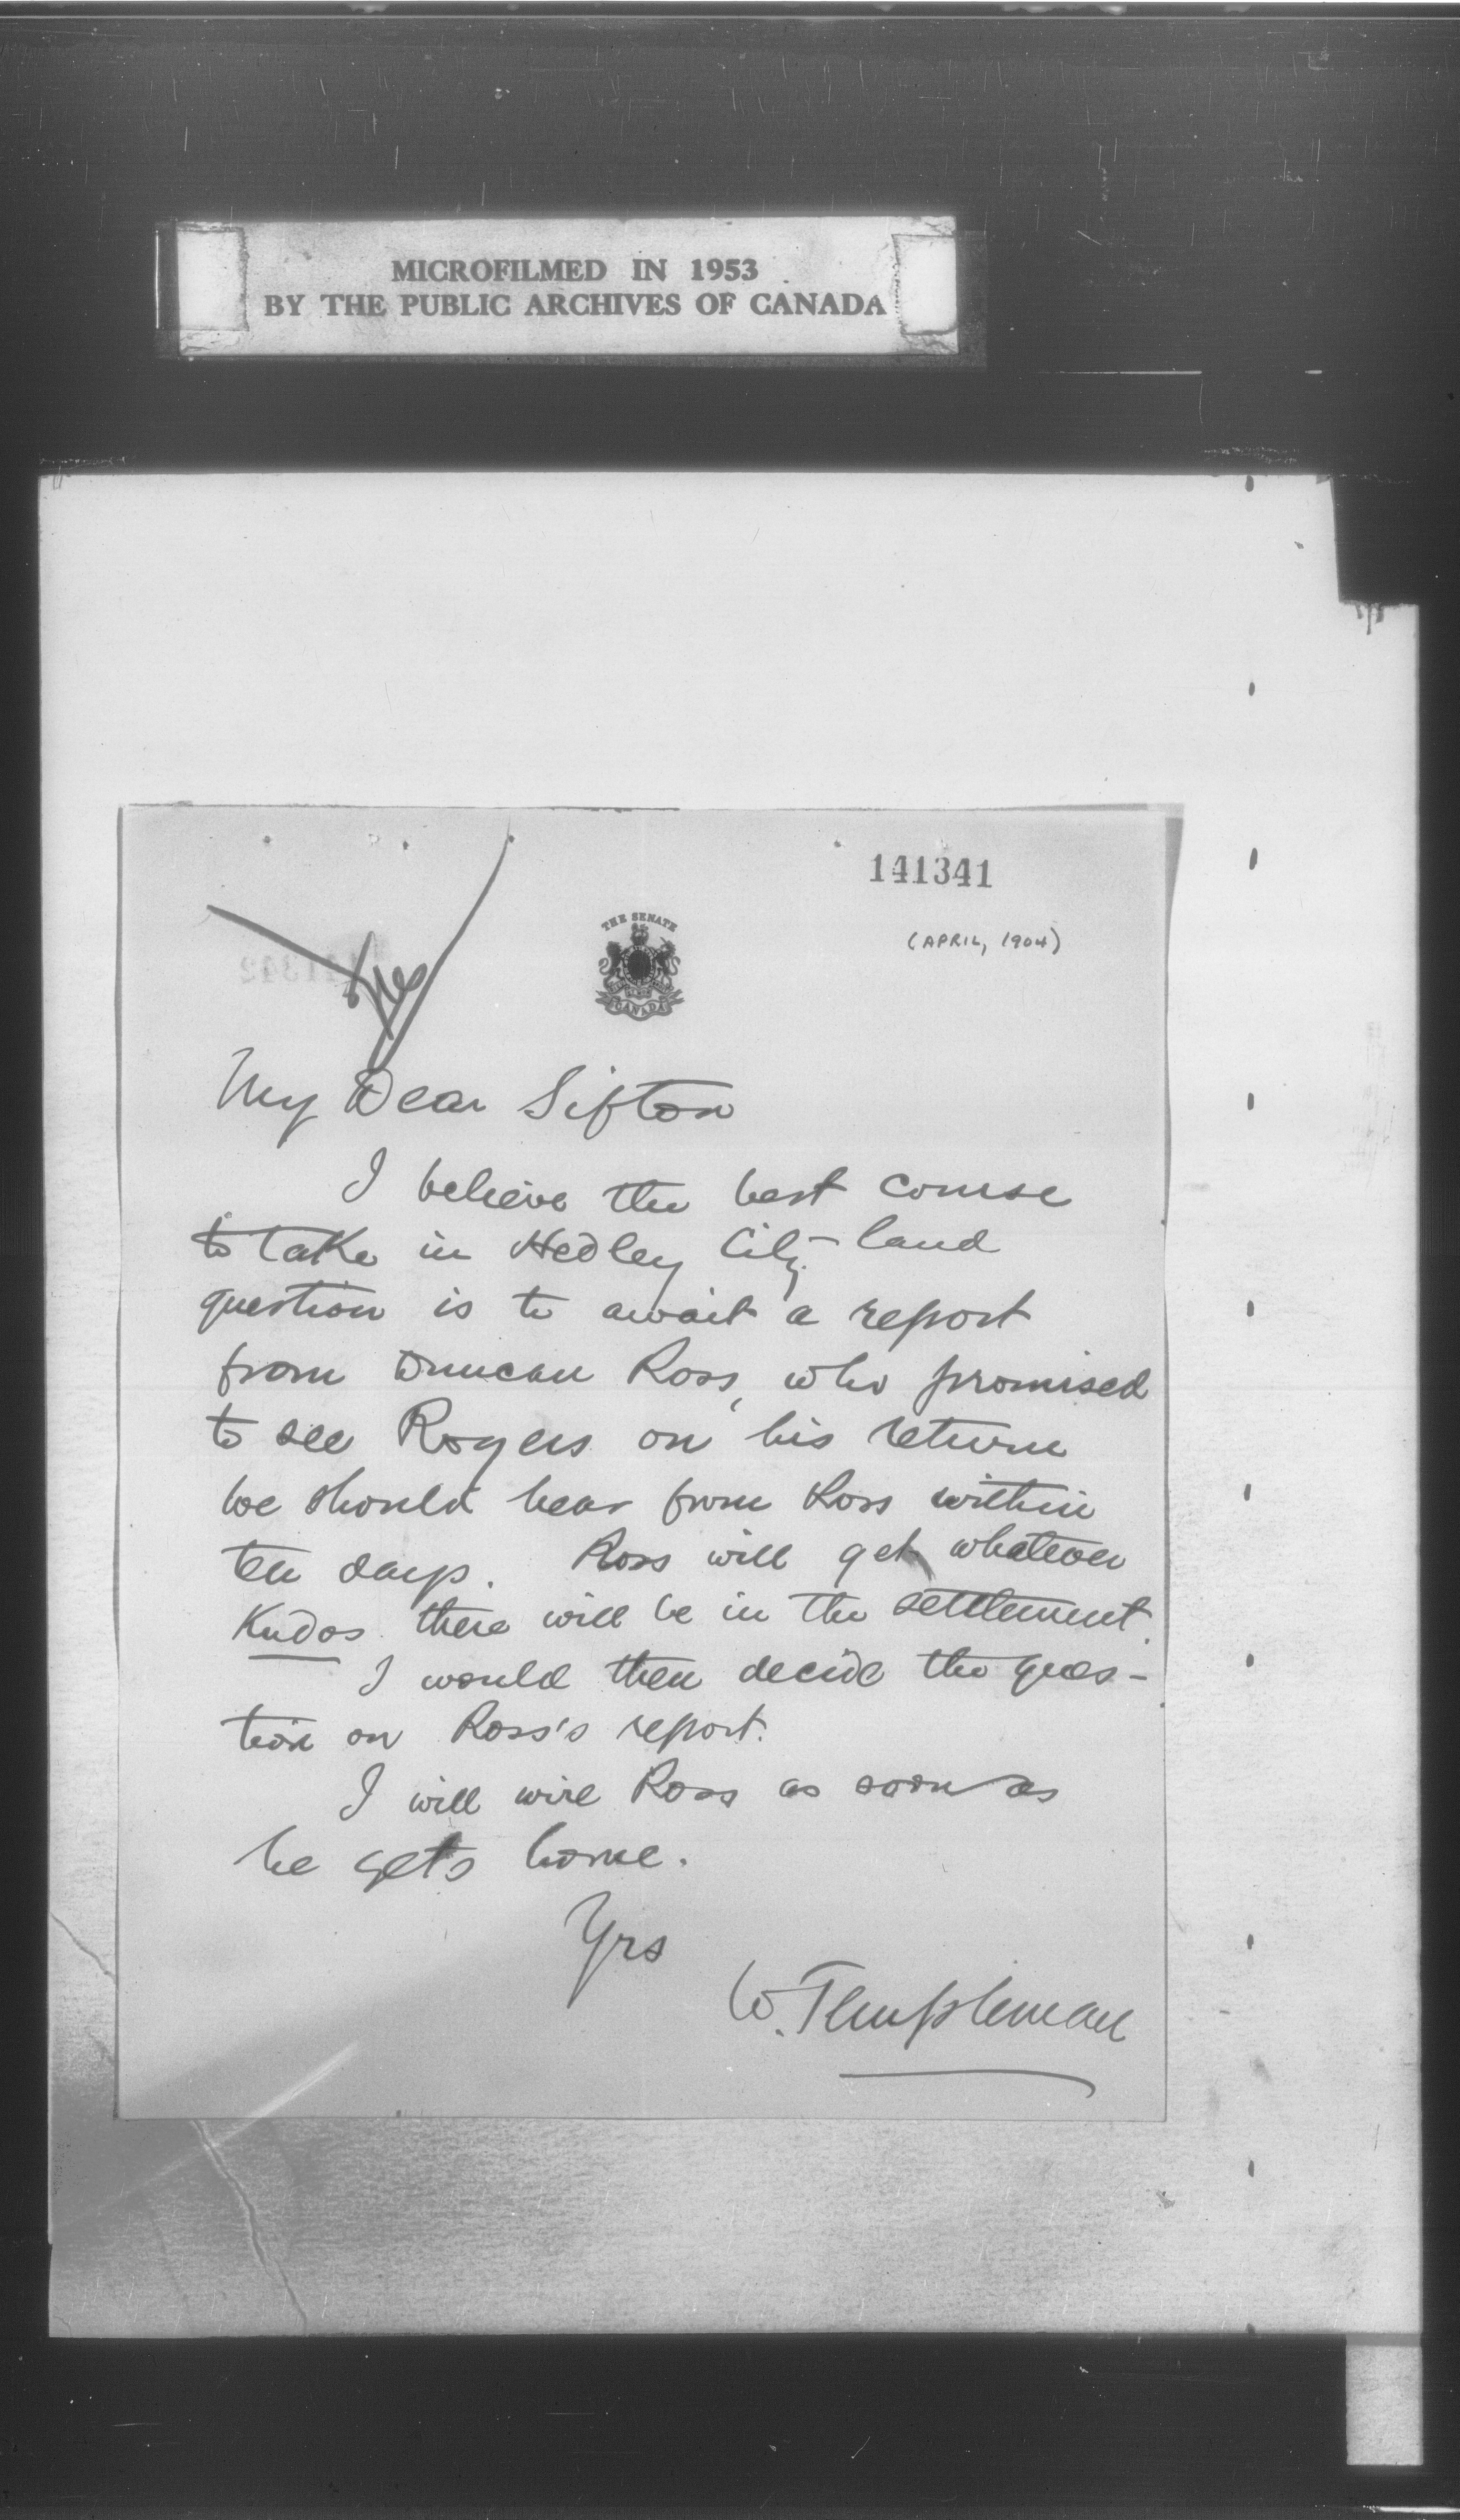 MICROFILMED IN 1953
BY THE PUBLIC ARCHIVES OF CANADA
141341
(APRIL, 1904)
THE SENATE
CANADA
My Dear Sifton
I believe the best course
to take in Hedley City land
question is to await a report
from Duncan Ross, who promised
to see Rogers on his return
We should hear from Ross within
ten days. Ross will get whatever
Kudos there will be in the settlement.
I would then decide the ques-
tion on Ross's report.
I will wire Ross as soon as
he gets home.
Yrs
W. Templeman